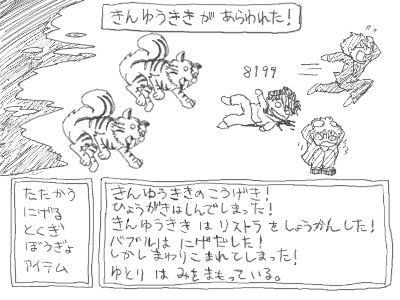 きんゆうききがあらわれた!
8199
たたかう
にげる
とくぎ
ぼうぎょ
アイテム
きんゆうききのこうげき!
ひょうがきはしんでしまった!
きんゆうきき は リストラ を しょうかんした!
バブルは にげだした!
しかし まわりこまれてしまった!
ゆとり は みをまもっている。